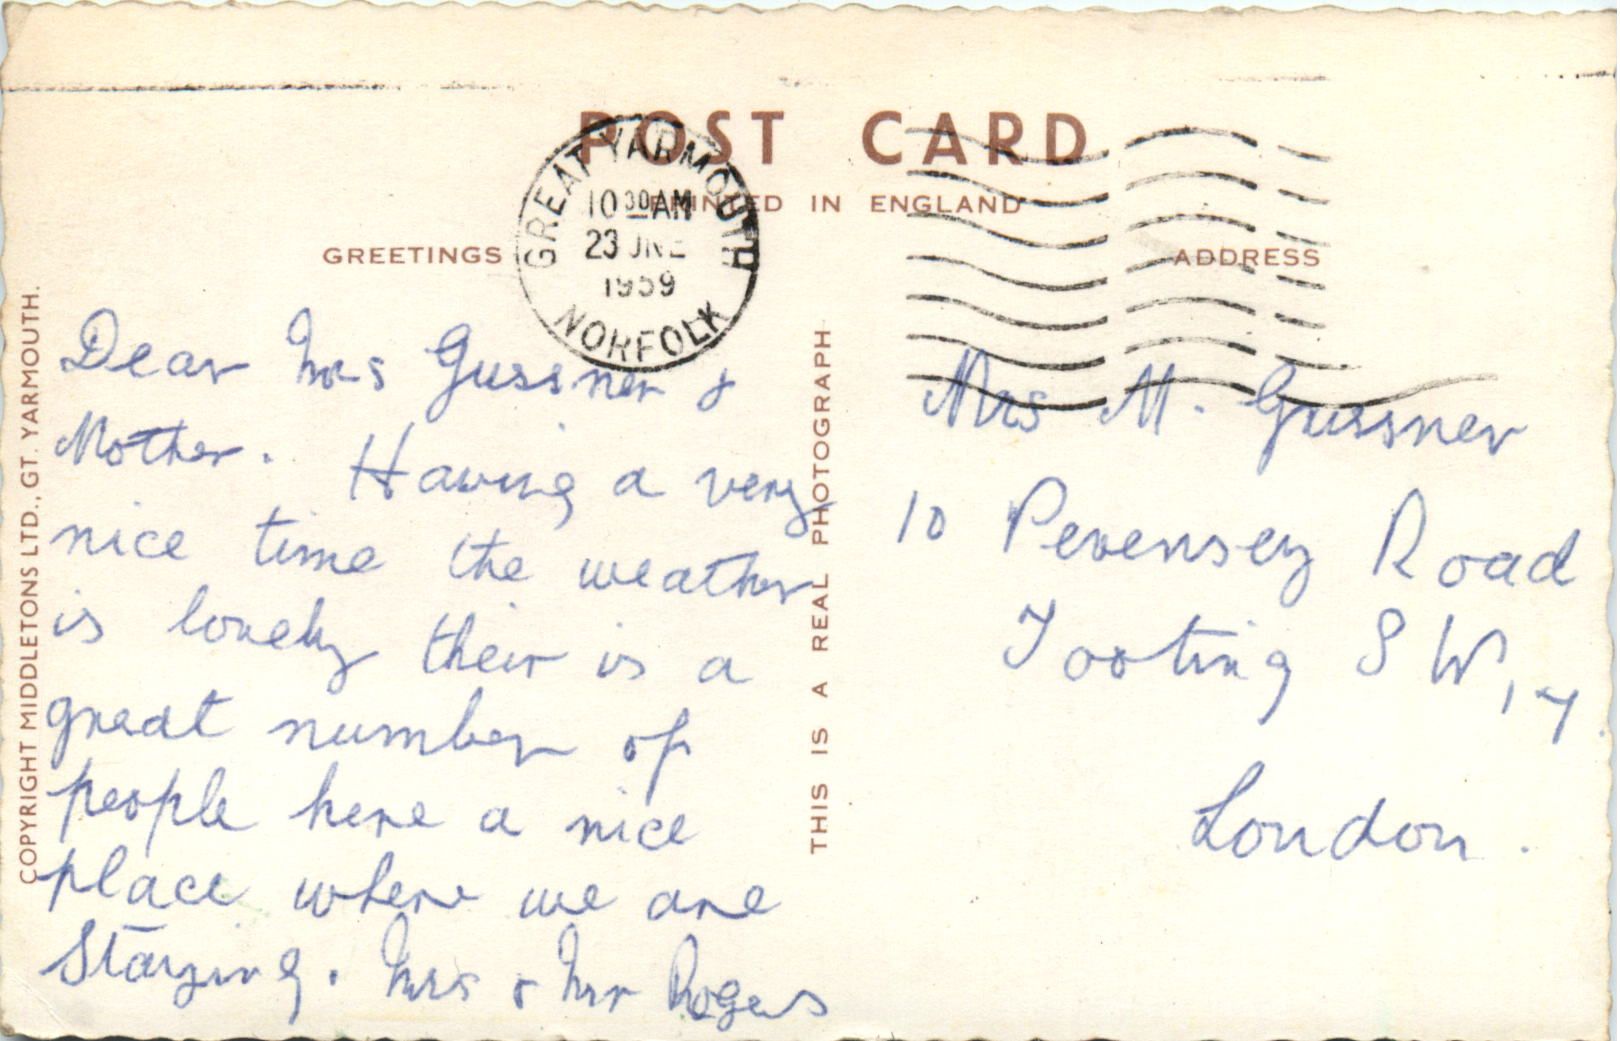 POST CARD
PRINTED IN ENGLAND
GREETINGS
ADDRESS
GREAT YARMOUTH
10 30 AM
23 JNE
1959
NORFOLK
Dear Mrs Gussner &
Mother. Having a very
nice time the weather
is lovely their is a
great number of
people here a nice
place where we are
Staying. Mrs & Mr Rogers
COPYRIGHT MIDDLETONS LTD., GT. YARMOUTH.
THIS IS A REAL PHOTOGRAPH
Mrs M. Gussner
10 Pevensey Road
Tooting S W, 17
London.